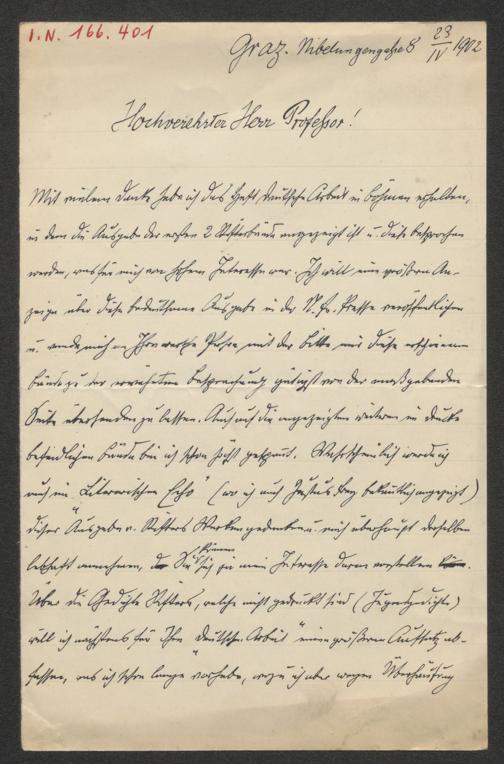 I.N. 166.401
Graz. Nibelungengasse 8 23/IV 1902
Hochverehrter Herr Professor!
Mit vielem Danke habe ich das Heft deutsche Arbeit in Böhmen erhalten,
in dem die Ausgabe der ersten 2 Stifterbände angezeigt ist u. diese besprochen
werden, was für mich von hohem Interesse war. Ich will eine größere An-
zeige über diese bedeutsame Ausgabe in der N. Fr. Presse veröffentlichen
u. wende mich an Ihre werte Person mit der Bitte mir diese erschienenen
Bände zu der erwähnten Besprechung gütigst von der maßgebenden
Seite übersenden zu lassen. Auch auf die angezeigten weiteren im Drucke
befindlichen Bände bin ich schon höchst gespannt. Wahrscheinlich werde ich
auch im "Literarischen Echo" (wo ich auch Justus Frey bekanntlich angezeigt)
dieser Ausgabe v. Stifters Werken gedenken u. mich überhaupt derselben
lebhaft annehmen, Sie können sich ja mein Interesse daran vorstellen.
Über die Gedichte Stifters, welche nicht gedruckt sind (Jugendgedichte)
will ich nächstens für Ihre "deutsche Arbeit" einen größeren Aufsatz ab-
fassen, was ich schon lange vorhabe, wozu ich aber wegen Überhäufung